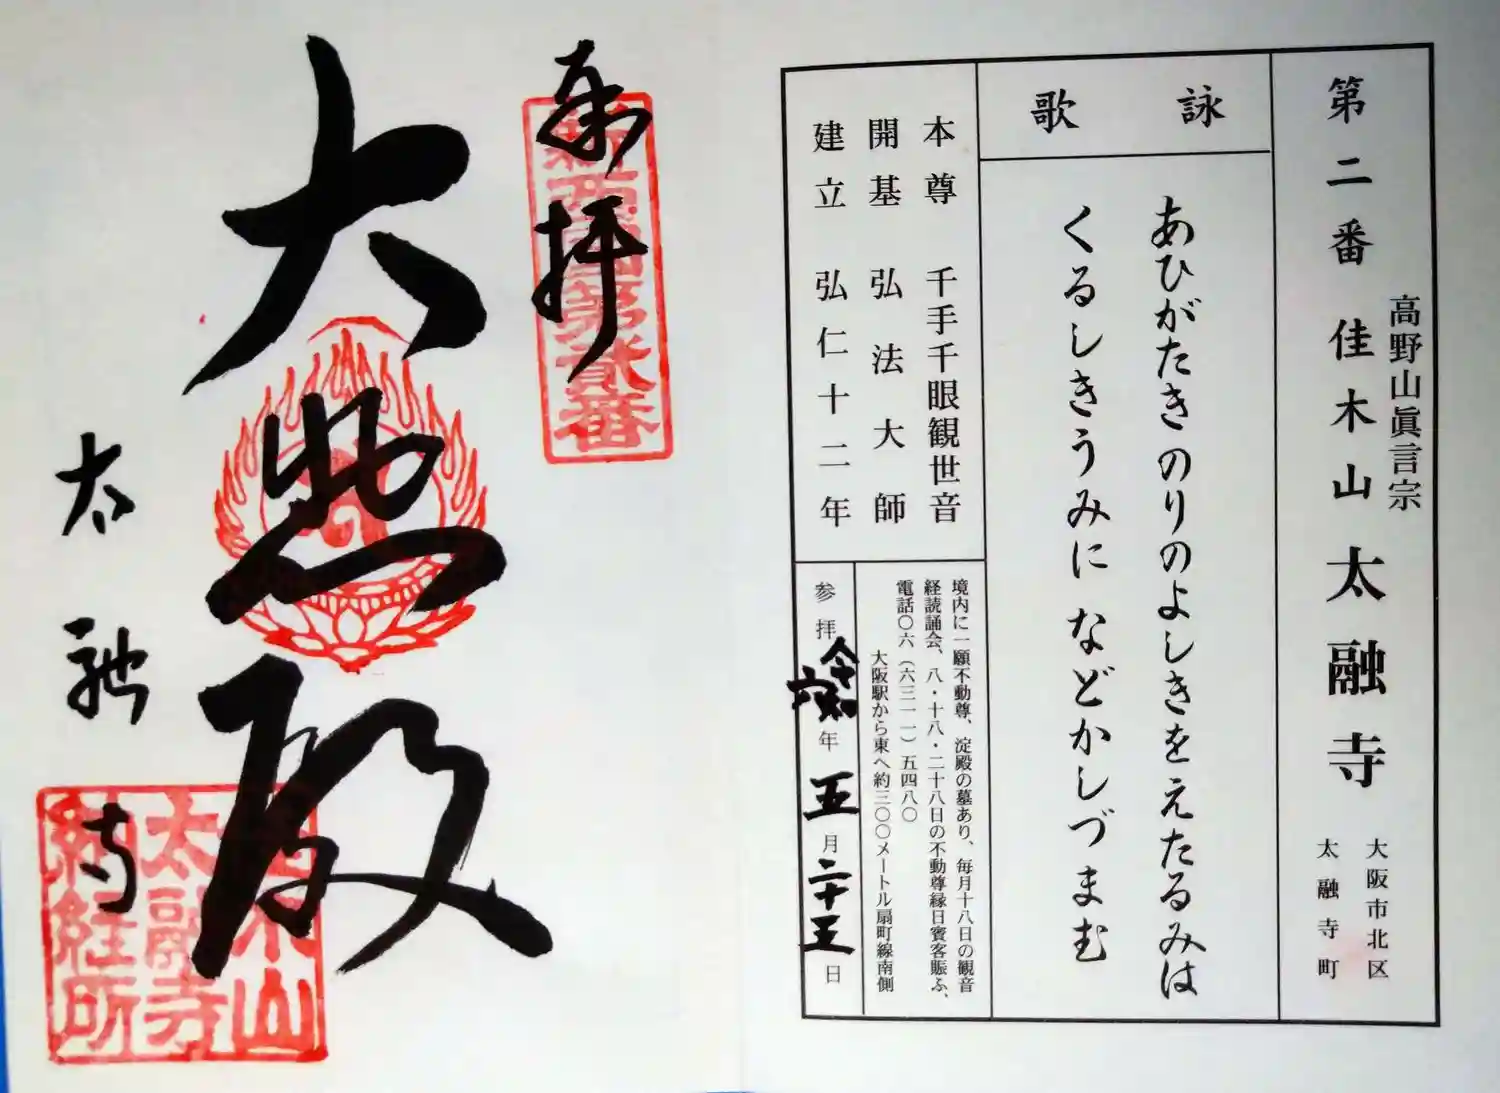 第二番 佳木山 太融寺
高野山眞言宗
大阪市北区
太融寺町
詠歌
あひがたき のりのよしきをえたるみは
くるしきうみに などかしづまむ
本尊 千手千眼観世音
開基 弘法大師
建立 弘仁十二年
境内に一願不動尊、淀殿の墓あり、毎月十八日の観音
経読誦会、八・十八・二十八日の不動尊縁日賓客賑ふ、
電話〇六(六三一一)五四八〇
大阪駅から東へ約三〇〇メートル扇町線南側
参拝 令和六年 五月二十五日
奉拝
新西國第貳番
大悲殿
太融寺
佳木山
太融寺
納経所